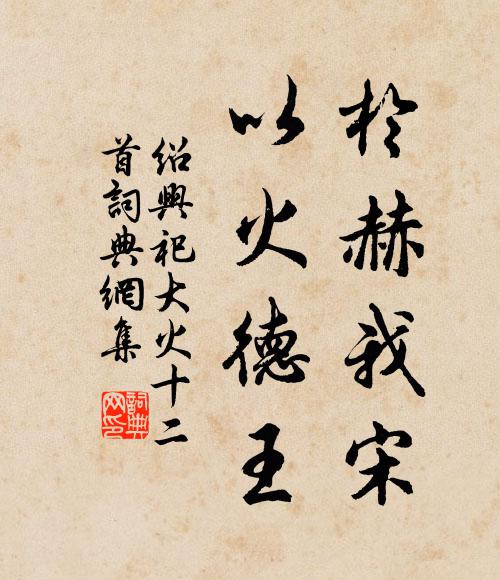 於赫我宋
以火德王
紹興祀大火十二
首詞典網集
詞典
网印